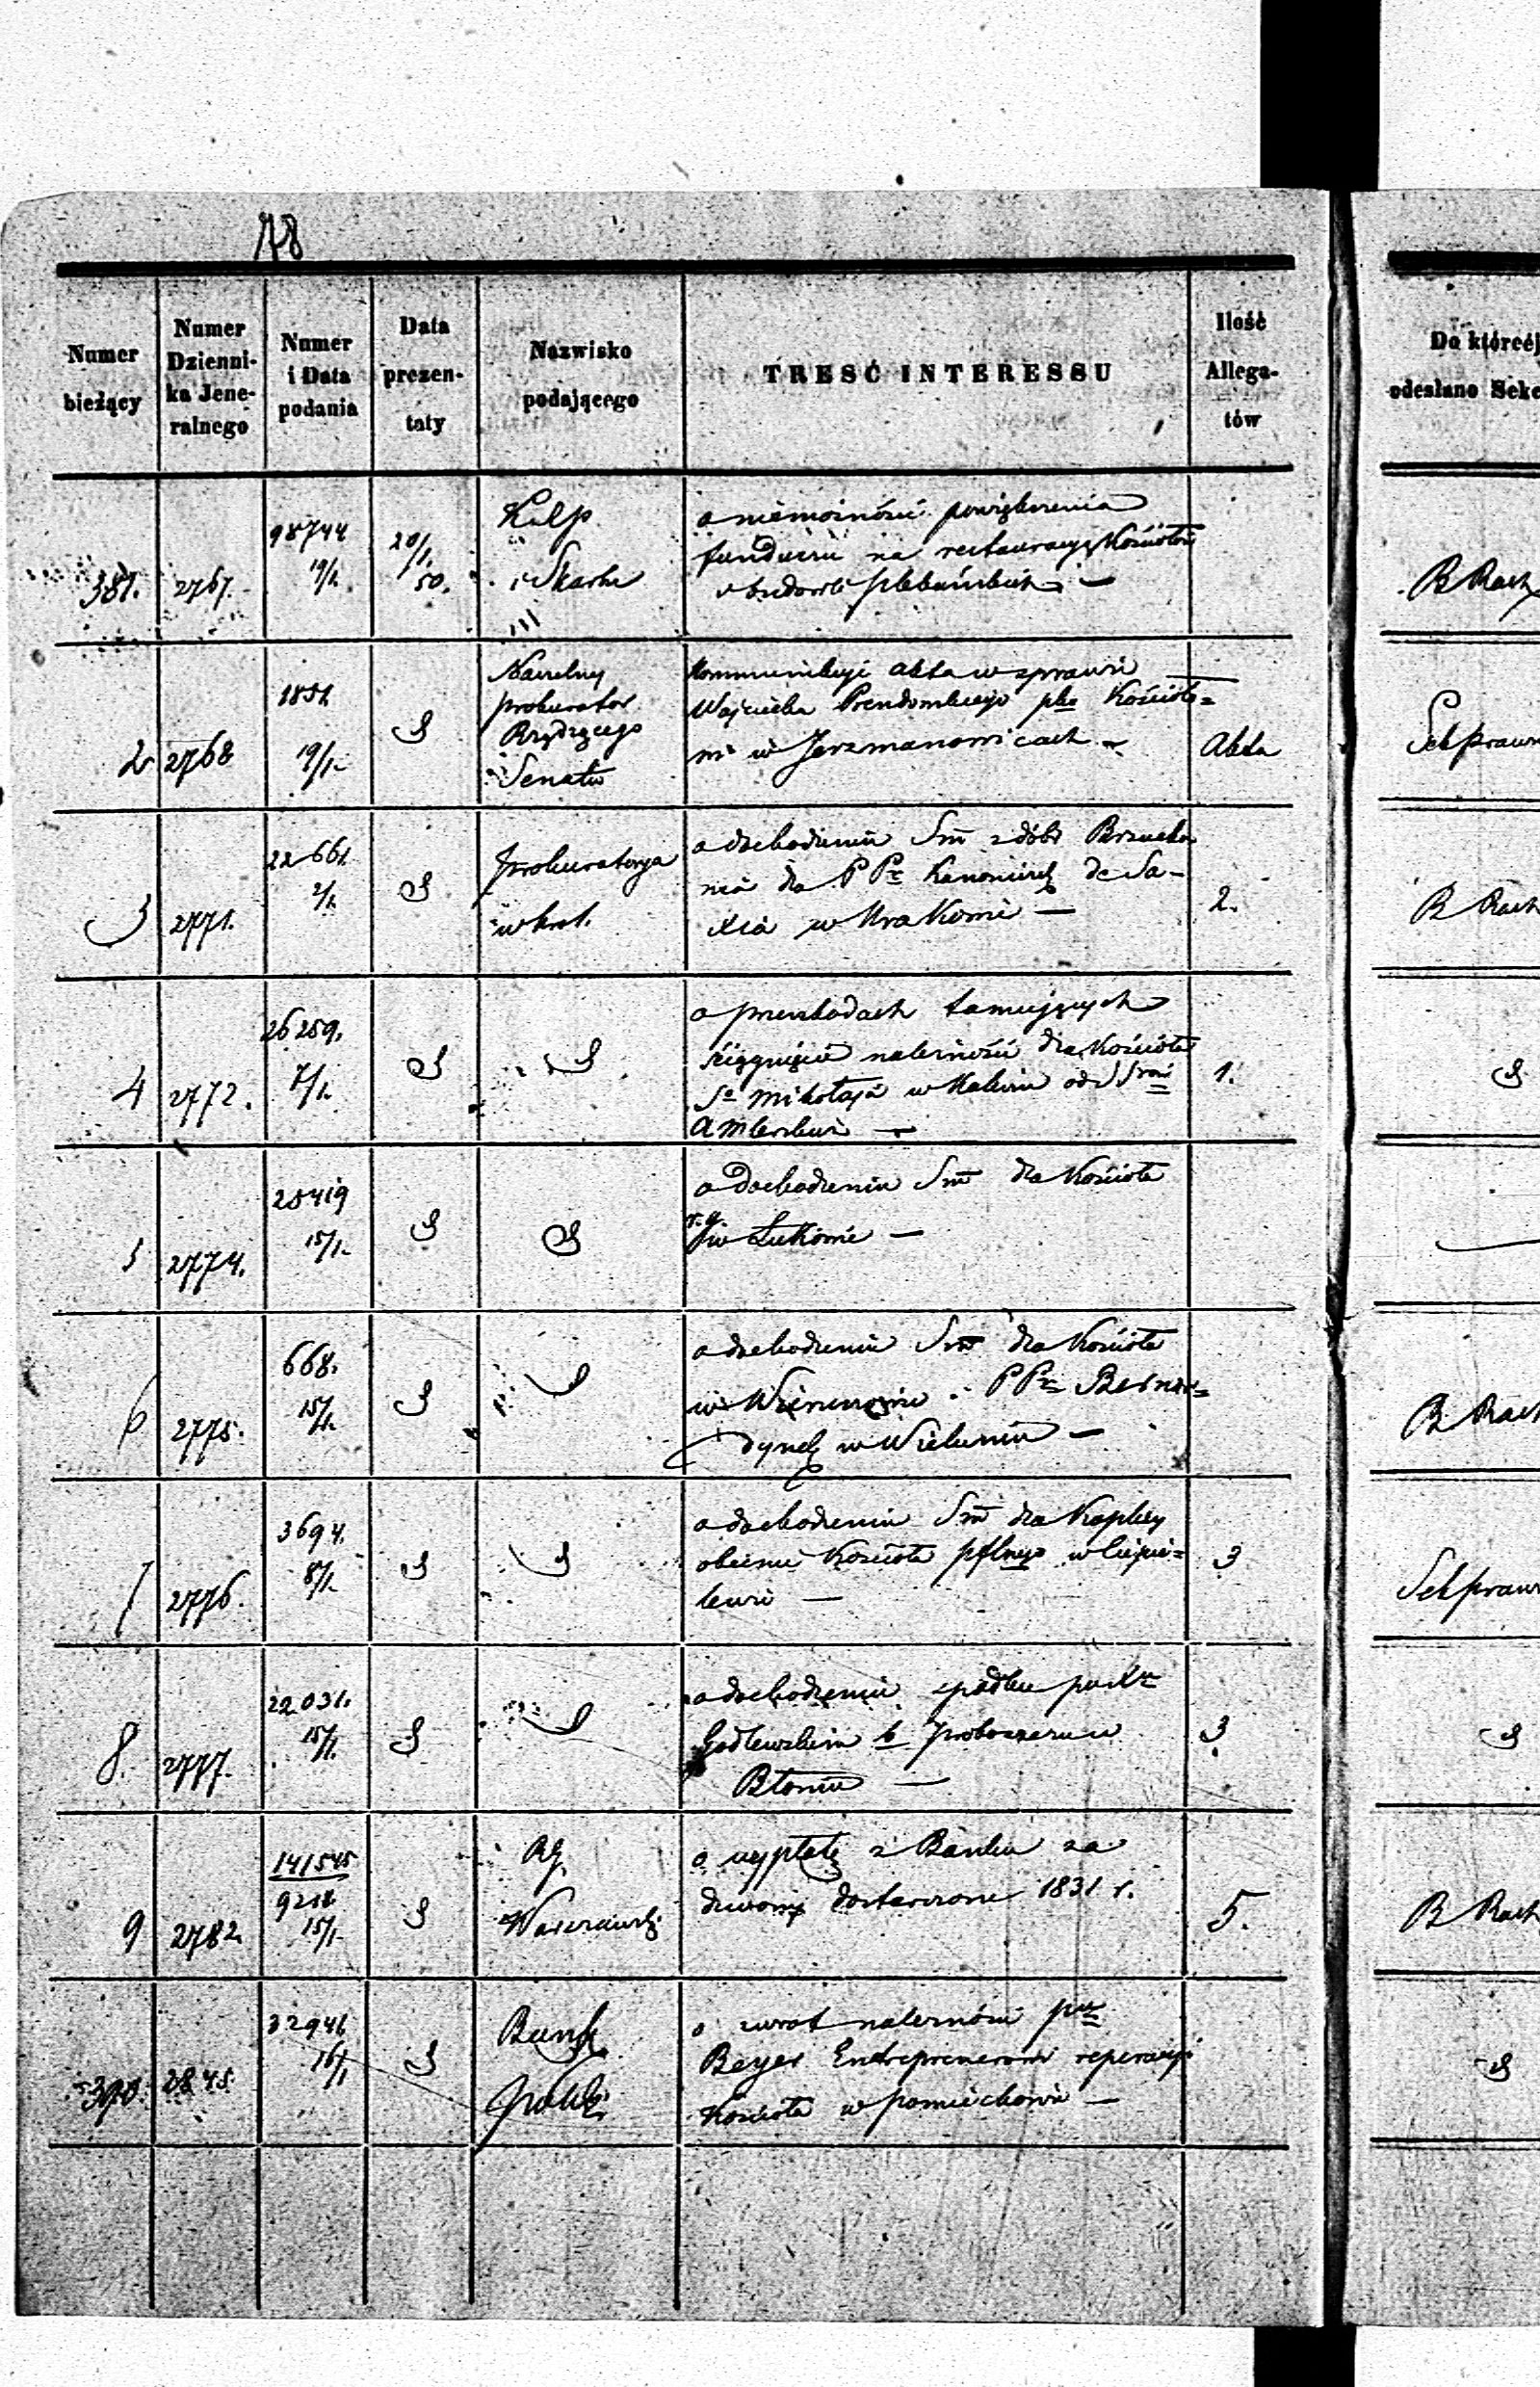 78
Numer bieżący
Numer Dzienni-ka Jene-ralnego
Numer i Data podania
Data prezen-taty
Nazwisko podającego
TREŚĆ INTERESSU
Ilość Allega-tów
Do któreéj
odesłano Sekc
381. 2767. 98744 19/1. 20/1. 50.
i Skarbu
o niemożności powiększenia
funduszu na restauracyę Kościoła
i budowli plebańskich —
B Rach
2 2768 1851 19/1. S
Naczelny
prokurator
Rządzącego
Senatu
kommunikuje akta w sprawie
Wojciecha Kościoło=
wi w Jerzmanowicach —
Akta
Sek prawn
3 2771. 22661. 2/1. S
Prokuratorya
w Król.
o dochodzeniu Sm z dóbr
nia dla PP Kanoniczek de Sa-
xia w Krakowie —
2.
B Rach
4 2772. 26259. 7/1. S S
o przeszkodach tamujących
ściągnięcie należności dla Kościoła
So Mikołaja w Kaliszu od
1.
S
5 2774. 28419 15/1. S S
o dochodzeniu Sm dla Kościoła
r. g.
w Łukowie —
6 2775. 668. 15/1. S S
o dochodzeniu Sm dla Kościoła
w PP Bernar=
dynek w Wieluniu —
B Rach
7 2776. 3694. 8/1. S S
o dochodzeniu Sm dla Kaplicy
obecnie Kościoła pflnego w Cięcie=
3
Sek prawn
8. 2777. 22031. 15/1. S S
o dochodzeniu spadku po Xie
Godlewskim b Proboszczu w
Błoniu —
3
S
9 2782 141545 15/1. S
RG
Warszawski
o wypłatę z Banku za
dzwony dostarczone 1831 r.
5.
B Rach
390. 2845. 32941 16/1 S
Bank
Polski
o zwrot należności prze
Beyer Entreprenerowi reperacyi
Kościoła w Pomiechowie —
S